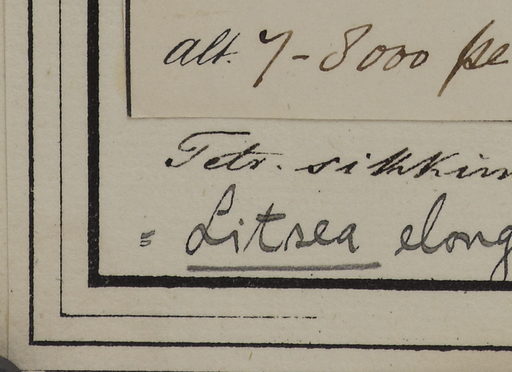 alt. 7-8000 pe
Tetr. sikkim
= Litsea elong